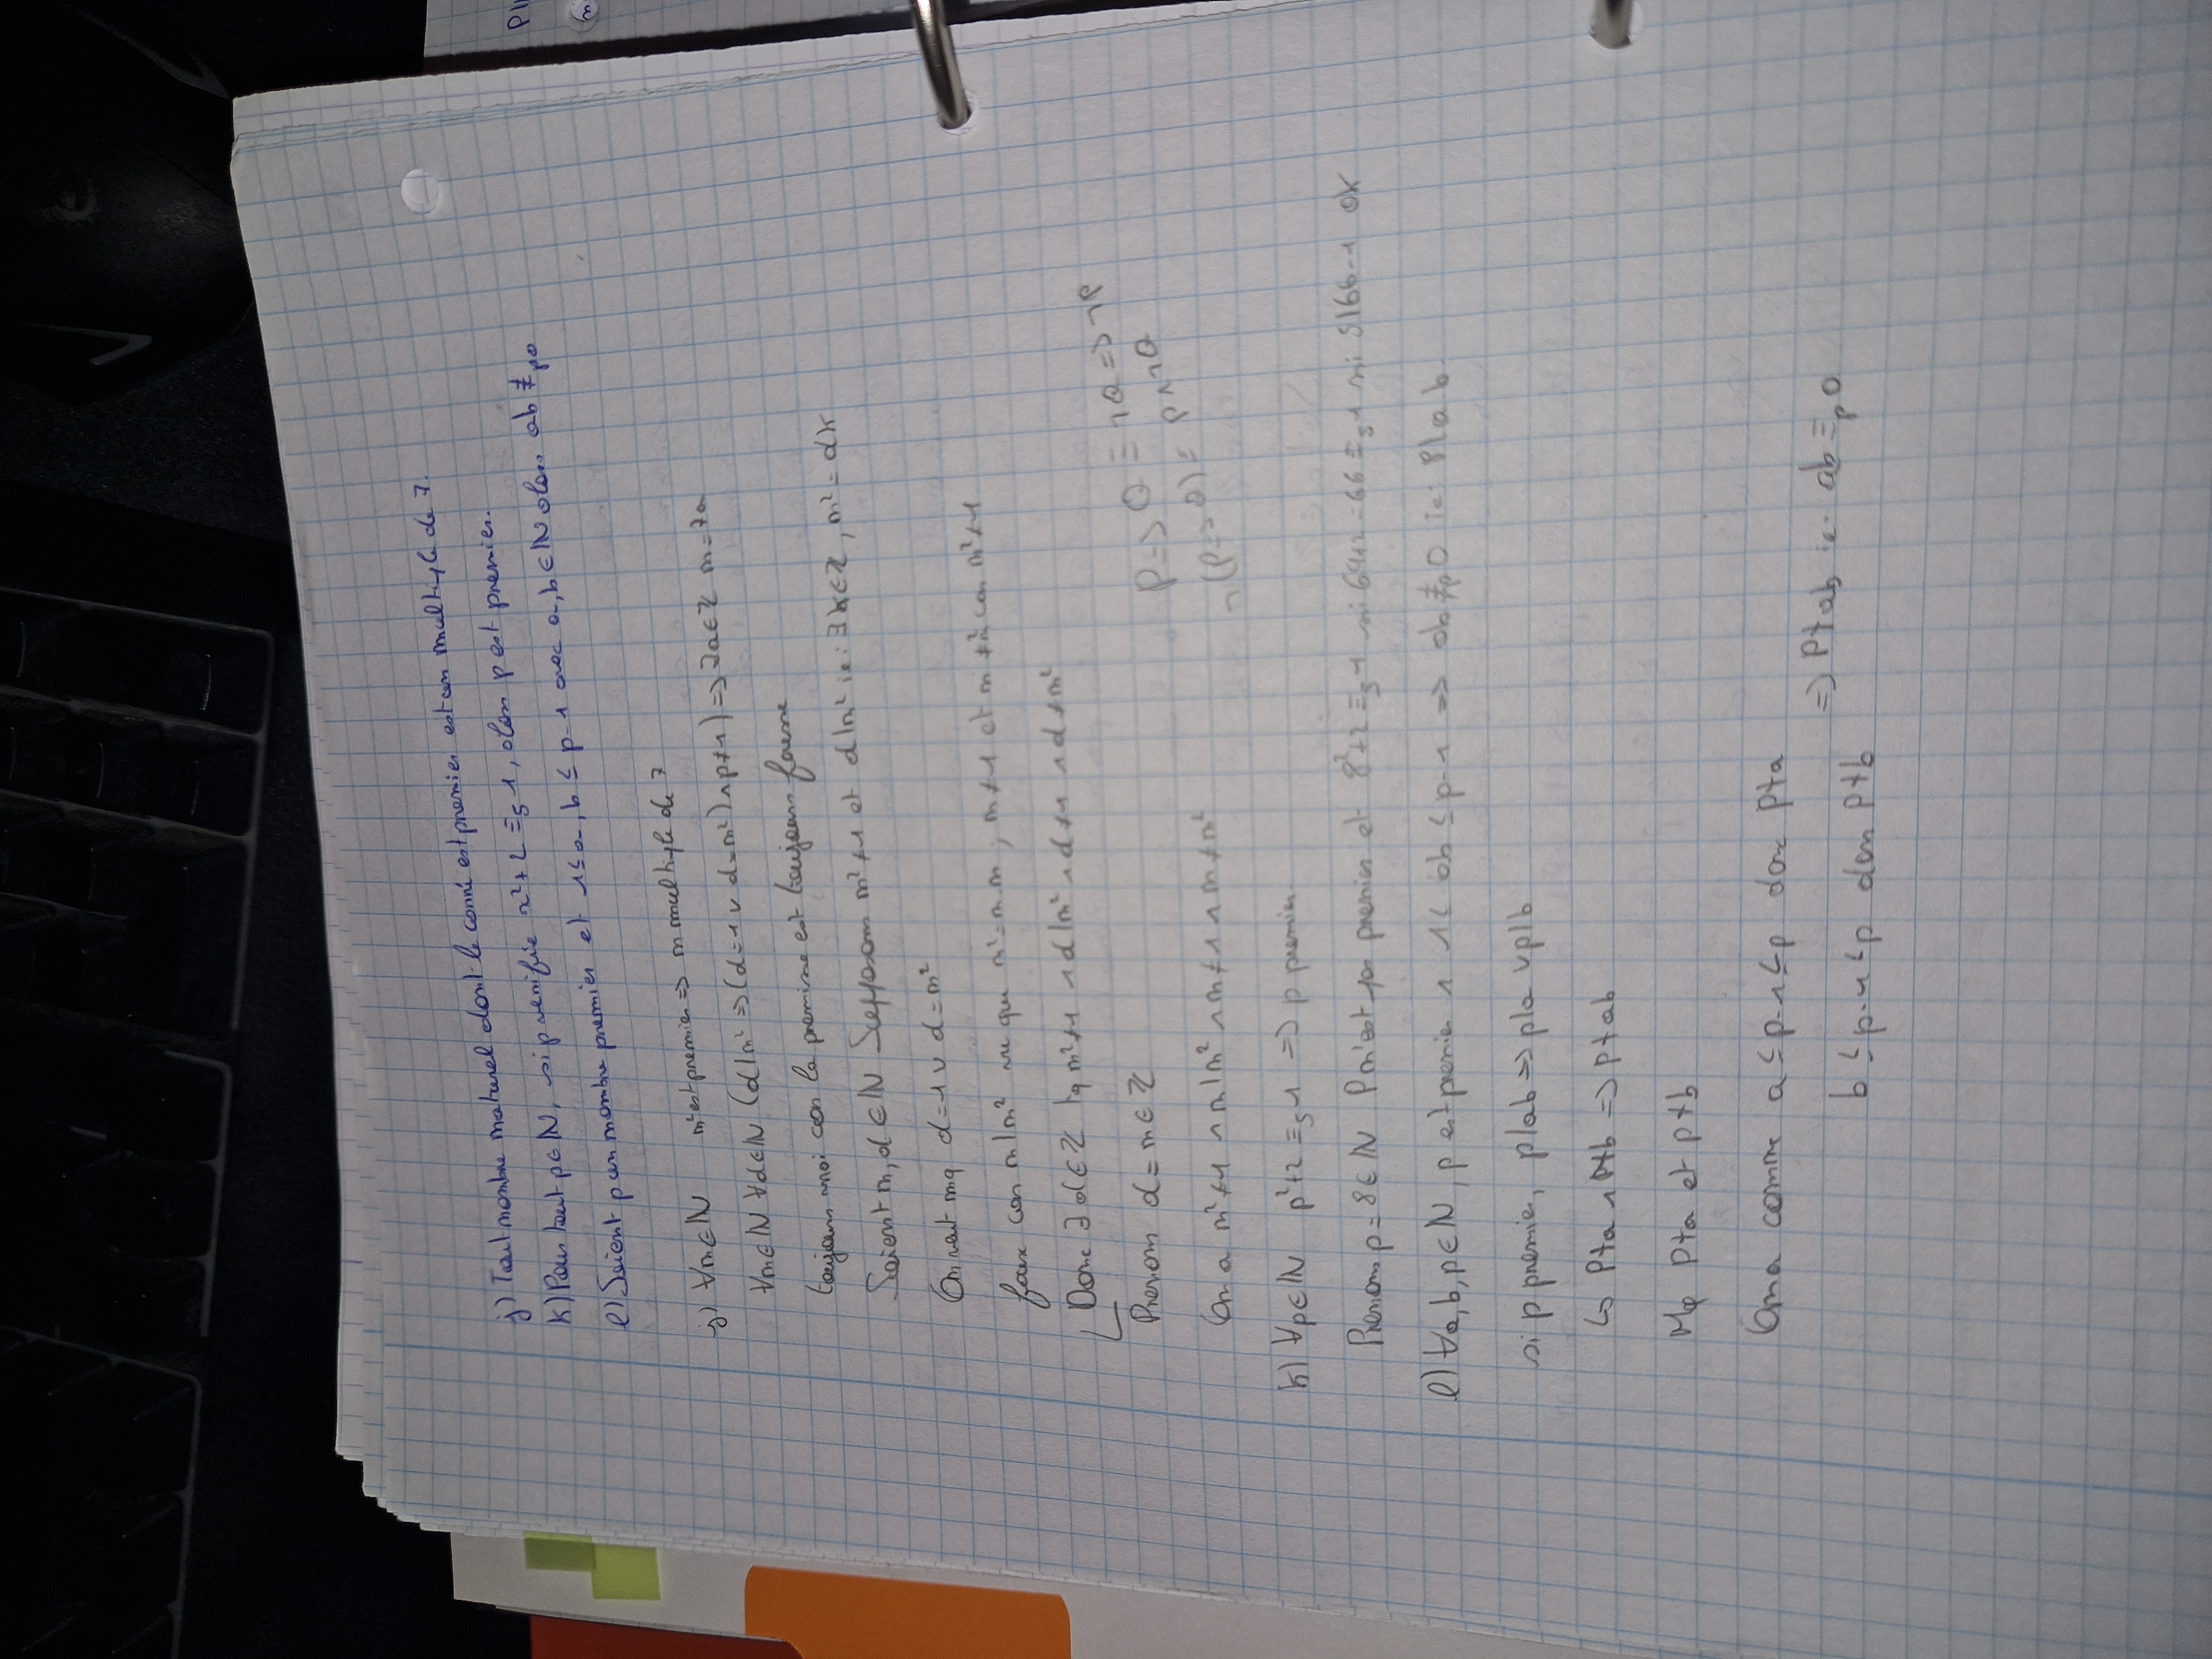 j) Tout nombre naturel dont le carré est premier est un multiple de 7.
k) Pour tout p ∈ ℕ, si p vérifie x² + 2 ≡₅ 1, alors p est premier.
l) Soient p un nombre premier et 1 ≤ a, b ≤ p-1 avec a, b ∈ ℕ alors ab ≢ₚ 0
j) ∀n ∈ ℕ n² est premier => n multiple de 7
∀n ∈ ℕ ∀d ∈ ℕ (d|n² => (d=1 ∨ d=n²) ∧ p≠1) => ∃a ∈ ℤ n=7a
toujours vrai car la prémisse est toujours fausse
Soient n, d ∈ ℕ Supposons n² ≠ 1 et d|n² ie: ∃k ∈ ℤ, n² = dk
On veut mq d=1 ∨ d=n²
faux car n|n² vu que n²=n.n ; n≠1 et n≠n² car n²≠1
Donc ∃d ∈ ℤ tq n²≠1 ∧ d|n² ∧ d≠1 ∧ d≠n²
Prenons d = n ∈ ℤ
On a n²≠1 ∧ n|n² ∧ n≠1 ∧ n≠n²
P => Q ≡ ¬Q => ¬P
¬(P => Q) ≡ P ∧ ¬Q
k) ∀p ∈ ℕ p²+2 ≡₅ 1 => p premier
Prenons p = 8 ∈ ℕ P n'est pas premier et 8²+2 ≡₅ 1 ssi 64+2 = 66 ≡₅ 1 ssi 5|66-1 OK
l) ∀a, b, p ∈ ℕ, p est premier ∧ 1 ≤ ab ≤ p-1 => ab ≢ₚ 0 ie: P∤a.b
si p premier, p|ab => p|a ∨ p|b
↳ P∤a ∧ P∤b => p∤ab
Mq P∤a et p∤b
On a comme a ≤ p-1 ≤ p donc P∤a
b ≤ p-1 < p donc P∤b
=> P∤ab ie. ab ≡ₚ 0